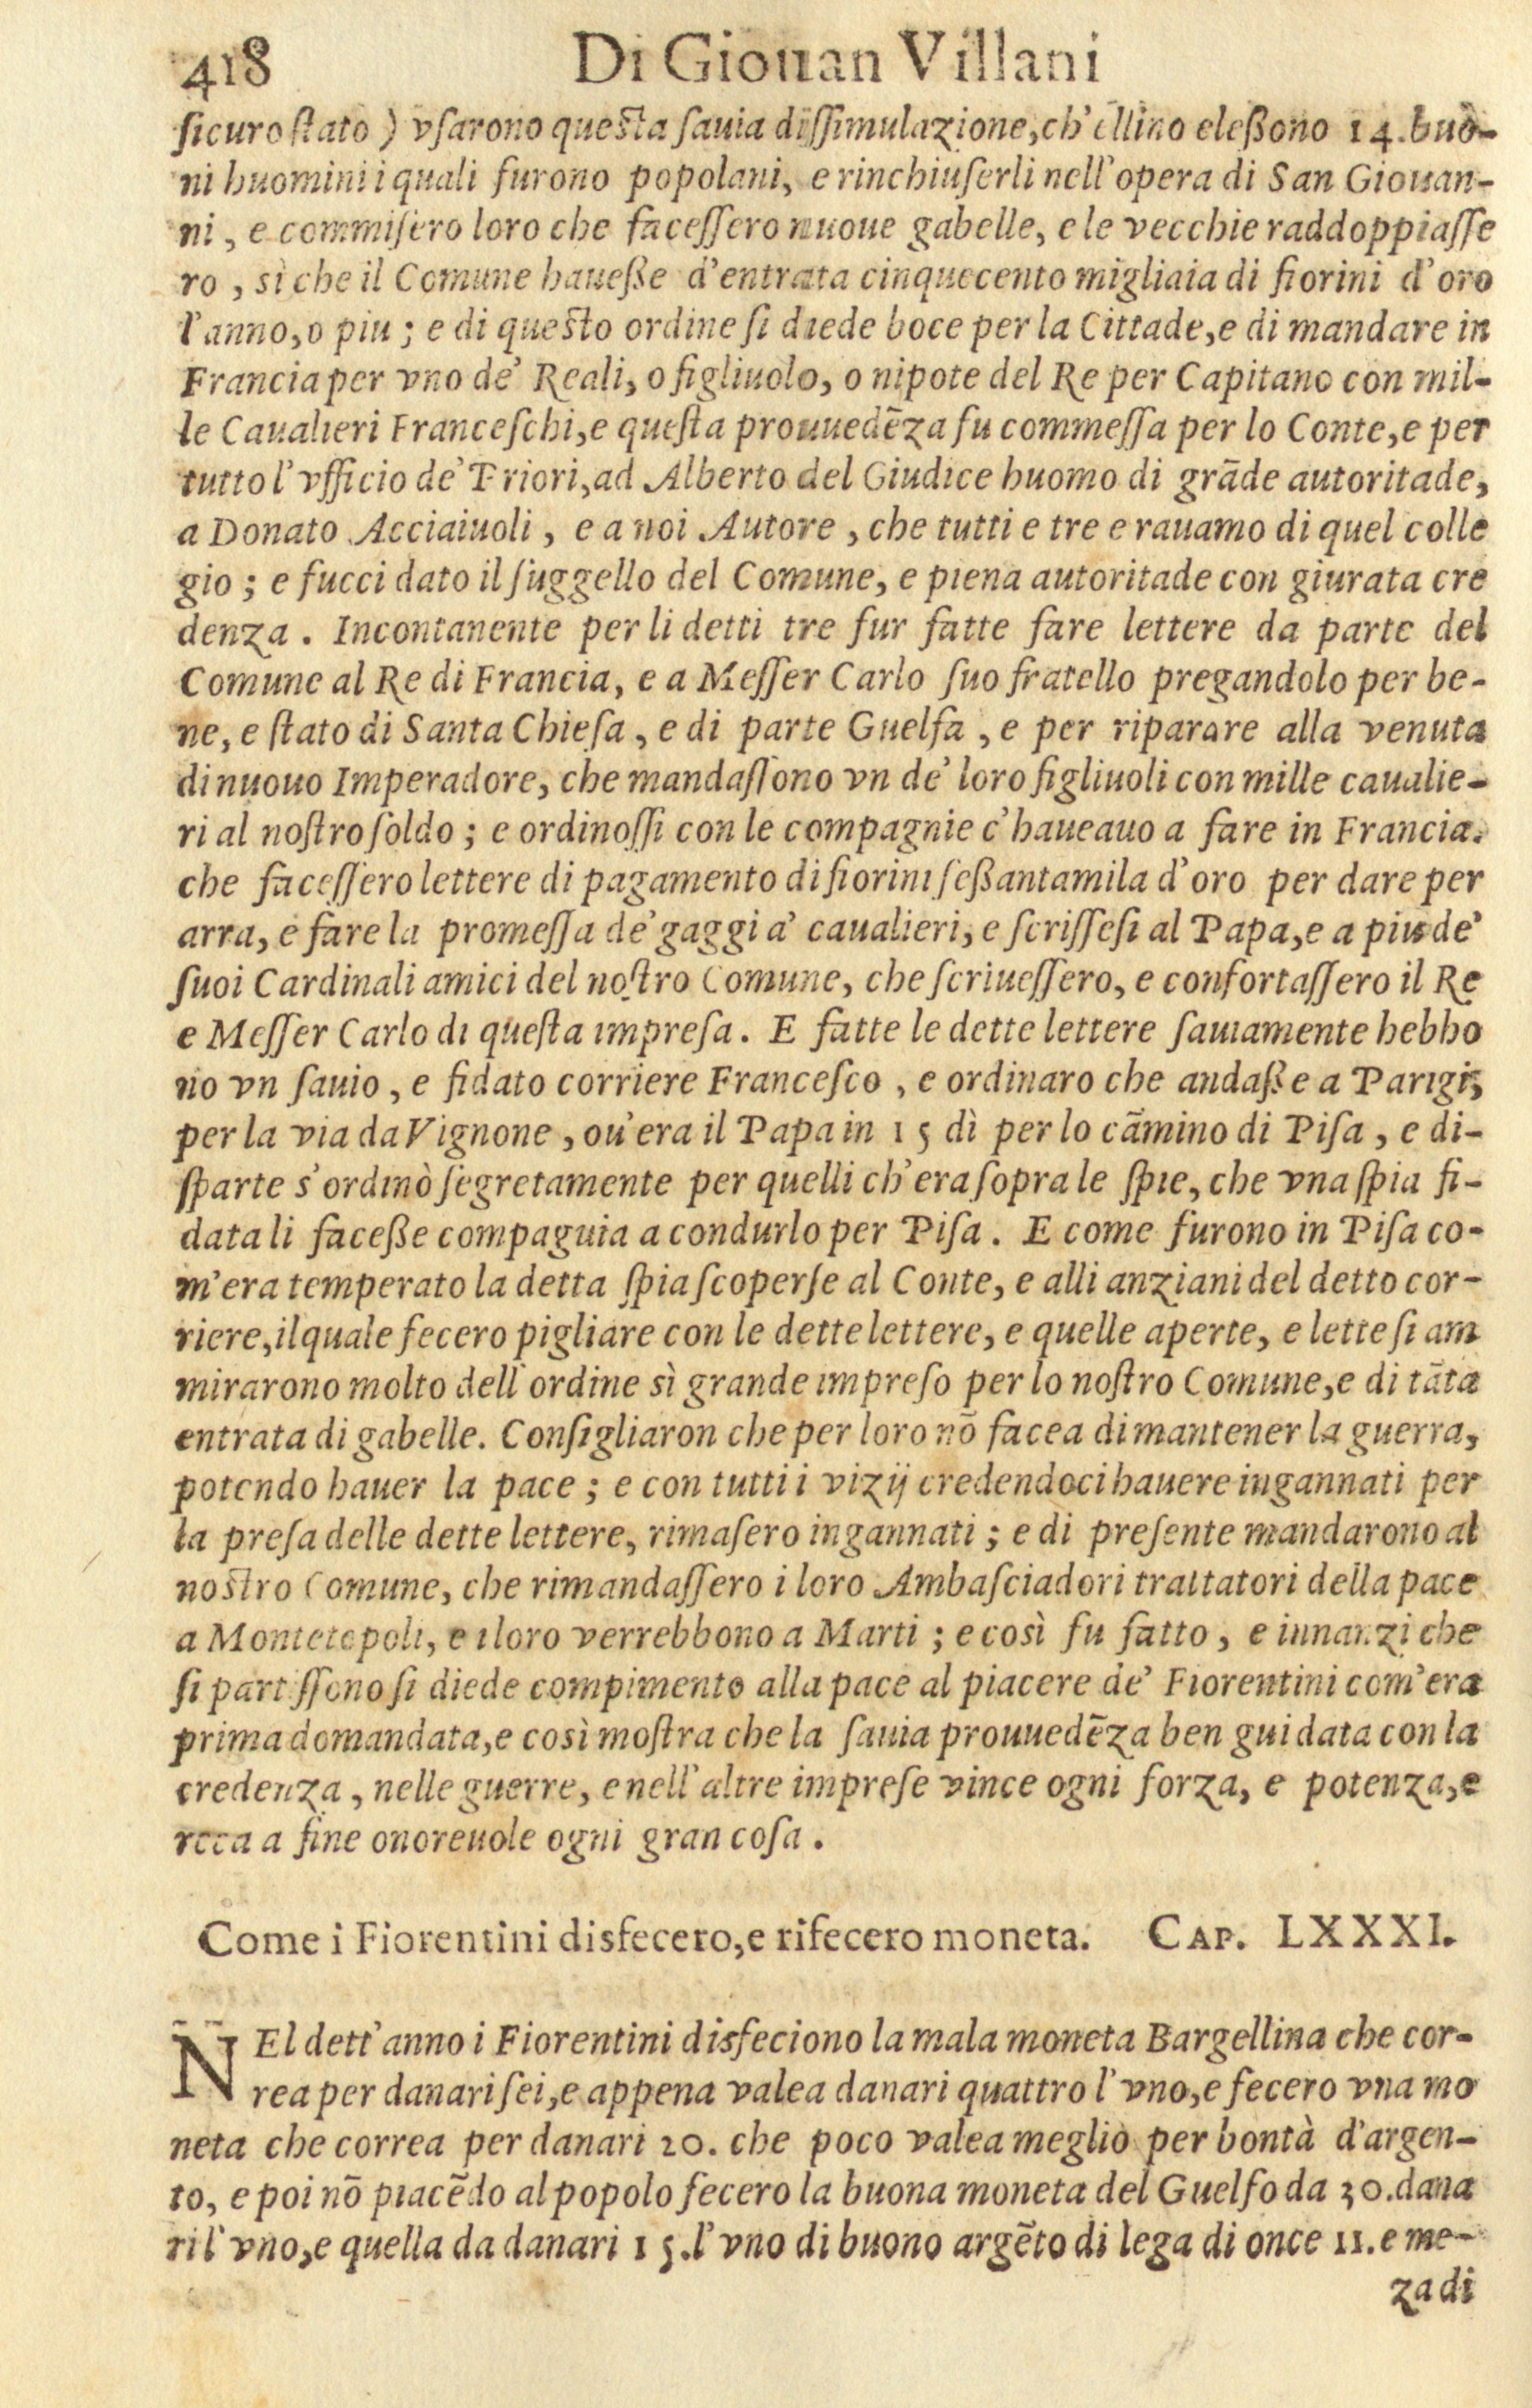 418 Di Giouan Villani
ſicuro ſtato) vſarono queſta ſauia diſſimulazione, ch'ellino eleßono 14. buo-
ni huomini i quali furono popolani, e rinchiuſerli nell'opera di San Giouan-
ni, e commiſero loro che faceſſero nuoue gabelle, e le vecchie raddoppiaſſe
ro, sì che il Comune haueße d'entrata cinquecento migliaia di fiorini d'oro
l'anno, o piu; e di queſto ordine ſi diede boce per la Cittade, e di mandare in
Francia per vno de' Reali, o figliuolo, o nipote del Re per Capitano con mil-
le Caualieri Franceſchi, e queſta prouuedēza fu commeſſa per lo Conte, e per
tutto l'vfficio de' Priori, ad Alberto del Giudice huomo di grāde autoritade,
a Donato Acciaiuoli, e a noi Autore, che tutti e tre e rauamo di quel colle
gio; e fucci dato il ſuggello del Comune, e piena autoritade con giurata cre
denza. Incontanente per li detti tre fur fatte fare lettere da parte del
Comune al Re di Francia, e a Meſſer Carlo ſuo fratello pregandolo per be-
ne, e ſtato di Santa Chieſa, e di parte Guelfa, e per riparare alla venuta
di nuouo Imperadore, che mandaſſono vn de' loro figliuoli con mille caualie-
ri al noſtro ſoldo; e ordinoſſi con le compagnie c'haueauo a fare in Francia.
che faceſſero lettere di pagamento di fiorini ſeßantamila d'oro per dare per
arra, e fare la promeſſa de' gaggi a' caualieri, e ſcriſſeſi al Papa, e a piu de'
ſuoi Cardinali amici del noſtro Comune, che ſcriueſſero, e confortaſſero il Re
e Meſſer Carlo di queſta impreſa. E fatte le dette lettere ſauiamente hebbo
no vn ſauio, e fidato corriere Franceſco, e ordinaro che andaße a Parigi,
per la via da Vignone, ou'era il Papa in 15 dì per lo cāmino di Piſa, e di-
ſparte s'ordinò ſegretamente per quelli ch'era ſopra le ſpie, che vna ſpia fi-
data li faceße compaguia a condurlo per Piſa. E come furono in Piſa co-
m'era temperato la detta ſpia ſcoperſe al Conte, e alli anziani del detto cor-
riere, il quale fecero pigliare con le dette lettere, e quelle aperte, e lette ſi am
mirarono molto dell'ordine sì grande impreſo per lo noſtro Comune, e di tāta
entrata di gabelle. Conſigliaron che per loro nō facea di mantener la guerra,
potendo hauer la pace; e con tutti i vizij credendoci hauere ingannati per
la preſa delle dette lettere, rimaſero ingannati; e di preſente mandarono al
noſtro Comune, che rimandaſſero i loro Ambaſciadori trattatori della pace
a Montetopoli, e i loro verrebbono a Marti; e così fu fatto, e innanzi che
ſi partiſſono ſi diede compimento alla pace al piacere de' Fiorentini com'era
prima domandata, e così moſtra che la ſauia prouuedēza ben guidata con la
credenza, nelle guerre, e nell'altre impreſe vince ogni forza, e potenza, e
reca a fine onoreuole ogni gran coſa.
Come i Fiorentini disfecero, e rifecero moneta. CAP. LXXXI.
NEl dett'anno i Fiorentini disfeciono la mala moneta Bargellina che cor-
rea per danari ſei, e appena valea danari quattro l'vno, e fecero vna mo
neta che correa per danari 20. che poco valea meglio per bontà d'argen-
to, e poi nō piacēdo al popolo fecero la buona moneta del Guelfo da 30. dana
ri l'vno, e quella da danari 15. l'vno di buono argēto di lega di once 11. e me-
za di